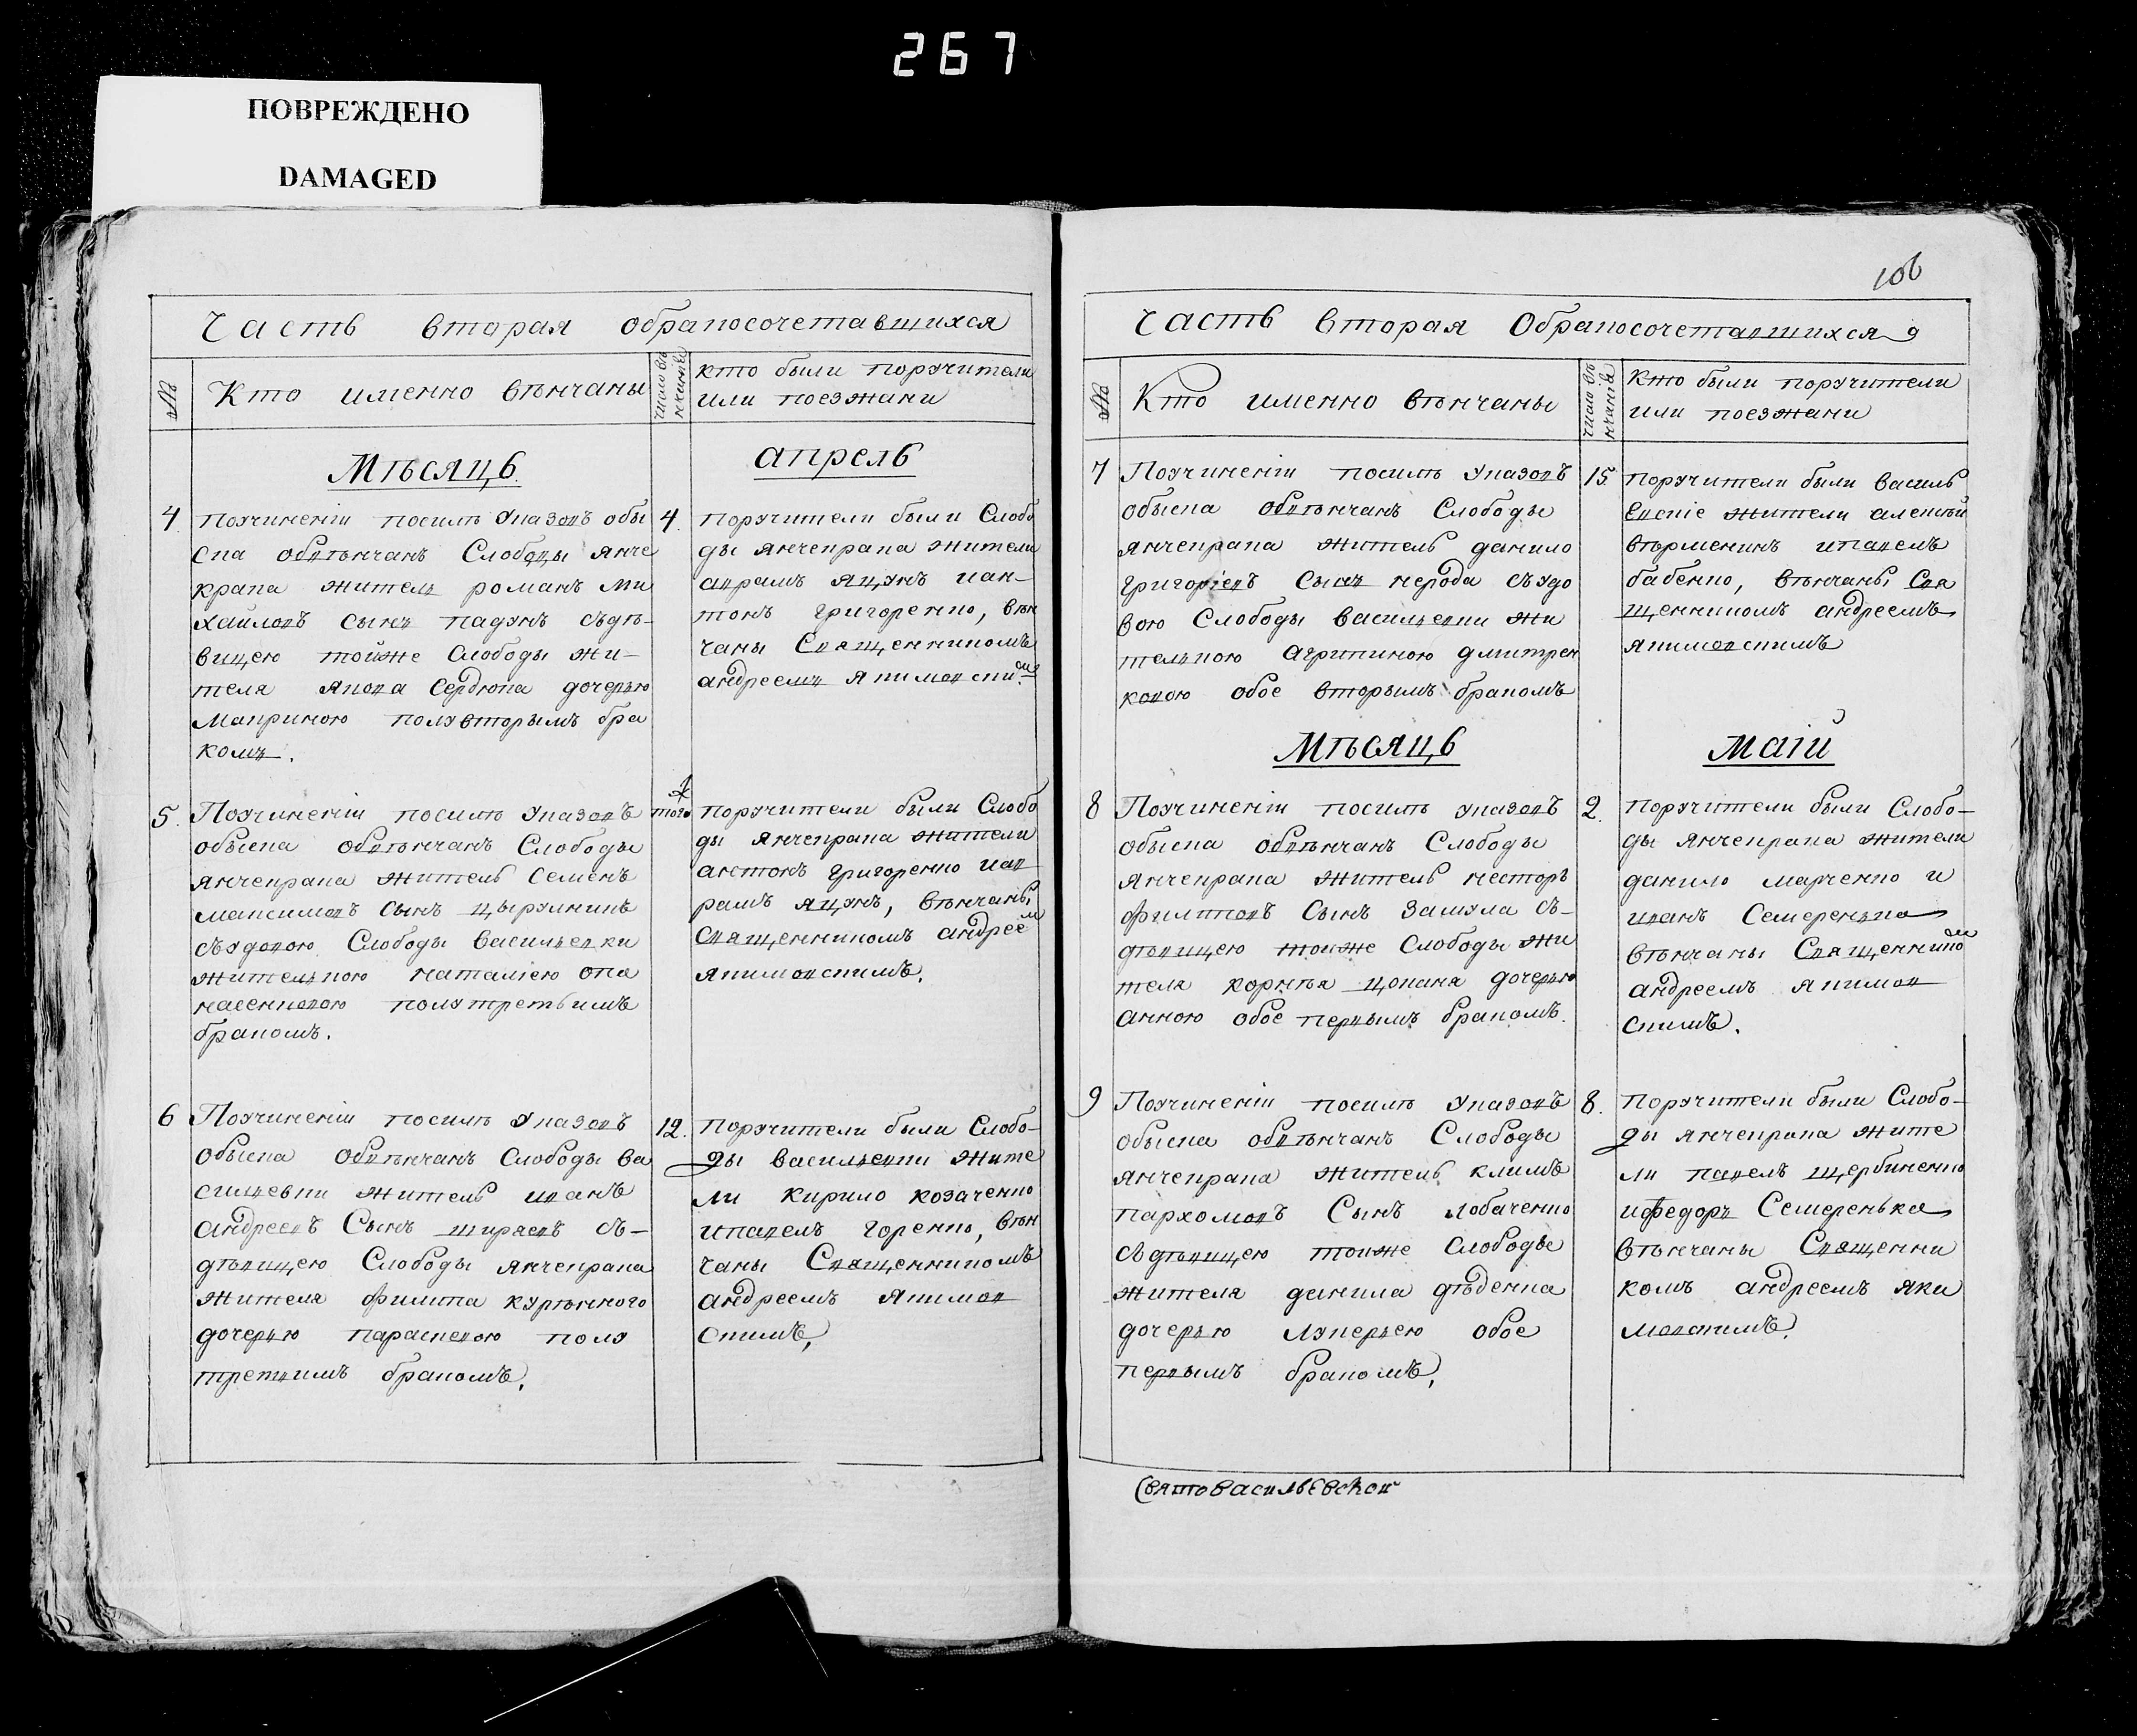 267
ПОВРЕЖДЕНО
DAMAGED
Часть вторая обракосочетавшихся
№
Кто именно вѣнчаны
число вѣнчанія
кто были поручители
или поезжани
Мѣсяцъ
апрель
4.
поучиненіи посилѣ Указовъ обы
ска обвѣнчанъ Слободы янче
крака житель романъ ми
хайловъ сынъ падунъ здѣ-
вицею тойже Слободы жи-
теля якова Сердюка дочерью
Макриною полувторымъ бра
комъ.
4.
поручители были Слобо
ды янчекрака жители
аврамъ яцунъ иан-
тонъ григоренко, вѣн
чаны Священникомъ
андреемъ якимовски:мъ
5.
Поучиненіи посилѣ Указовъ
обыска обвѣнчанъ Слободы
янчекрака житель Семенъ
максимовъ сынъ цырулникъ
съудовою Слободы васильевки
жителькою наталіею опа
насенковою полутретьимъ
бракомъ.
того
поручители были Слобо
ды янчекрака жители
антонъ григоренко иав
рамъ яцунъ, вѣнчаны
Священникомъ андрее
м
якимовскимъ.
6
Поучиненіи посилѣ Указовъ
обыска обвѣнчанъ Слободы ва
силевки житель иванъ
андреевъ Сынъ ширяевъ съ-
дѣвицею Слободы янчекрака
жителя филипа курѣнного
дочерью параскевою полу
третимъ бракомъ.
12.
поручители были Слобо-
ды васильевки жите
ли кирило козаченко
ипавелъ горенко, вѣн
чаны Священникомъ
андреемъ якимов
скимъ.
106
Часть вторая Обракосочетавшихся
№
Кто именно вѣнчаны
число вѣнчанія
Кто были поручители
или поезжани
7
Поучиненіи посилѣ Указовъ
обыска обвѣнчанъ Слободы
янчекрака житель данило
григоріевъ Сынъ нерода съудо
вою Слободы васильевки жи
телькою агрипиною дмитрен
ковою обое вторымъ бракомъ
15.
поручители были василь
евскіе жители алексѣй
вѣрменикъ ипавелъ
бабенко, вѣнчаны Свя
щенникомъ андреемъ
якимовскимъ
Мѣсяцъ
маій
8
Поучиненіи посилѣ указовъ
обыска обвѣнчанъ Слободы
янчекрака житель несторъ
филиповъ Сынъ Замула съ-
дѣвицею тоиже Слободы жи
теля корнѣя цопана дочерью
анною обое первымъ бракомъ.
2.
поручители были Слобо-
ды янчекрака жители
данило марченко и
иванъ Семеренько
вѣнчаны Священнико
мъ
андреемъ якимов
скимъ.
9
Поучиненіи посилѣ указовъ
обыска обвѣнчанъ Слободы
янчекрака житель климъ
пархомовъ Сынъ лобаченко
съдѣвицею тоиже Слободы
жителя данила дѣденка
дочерью лукерьею обое
первымъ бракомъ.
8.
поручители были Слобо-
ды янчекрака жите
ли павелъ щербиненко
ифедоръ Семеренька
вѣнчаны Священни
комъ андреемъ яки
мовскимъ.
Святовасильевской